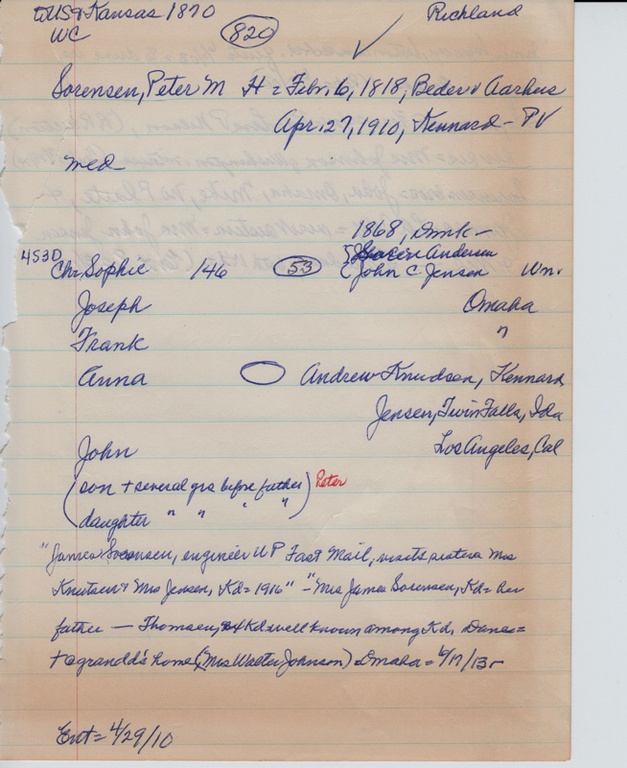 US & Kansas 1870 Richland
WC 820 ✓
Sorensen, Peter M H = Febr. 6, 1818, Beder v Aarhus
Apr. 27, 1910, Kennard - PV
med
1868, Dmk -
Andersen
4S3D
Chr Sophie 146 53 John C Jensen Wn.
Joseph Omaha
Frank "
Anna Andrew Knudsen, Kennard
Jensen, Twin Falls, Ida
John Los Angeles, Cal
(son + several grs before father) Peter
daughter " " " "
"James Sorensen, engineer UP Fast Mail, visits sisters Mrs
Knutsen & Mrs Jensen, Kd = 1916" - "Mrs James Sorensen, Kd = her
father — Thomsen, Kd well known among Kd. Danes =
to a grandd's home (Mrs Walter Johnson) Omaha = 6/17/15 -
Ent = 4/29/10